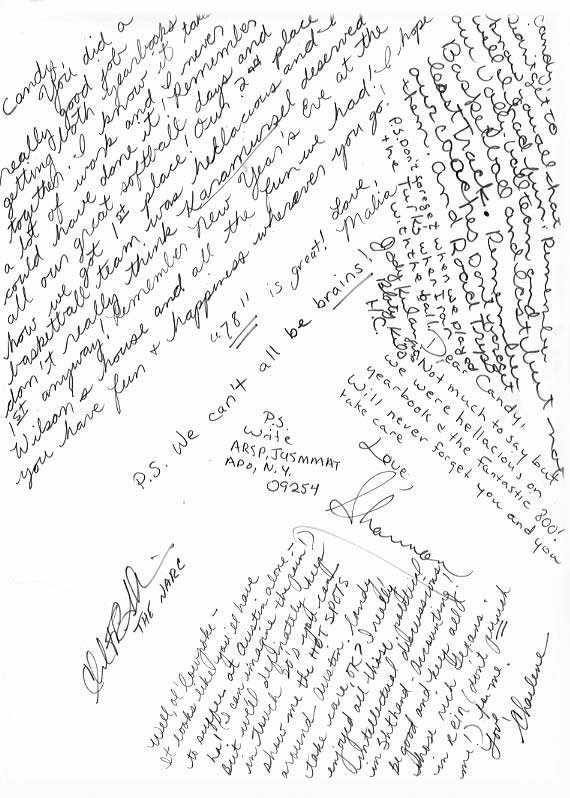 Candy,
You did a
really good job
getting both yearbooks
together. I know it takes
a lot of work and I never
could have done it! Remember
all our great softball days and
how we got 1st place! Our 2nd place
basketball team was hellacious and I
don't really think Karamursel deserved
1st anyway! Remember New Year's Eve at the
Wilson's house and all the fun we had! I hope
you have fun & happiness wherever you go!
Love,
Malia
"78" is great!
P.S. We can't all be brains!
P.S.
Write
ARSP, JUSMMAT
APO, N.Y.
09254
Candy,
Basketball and
last Track. Remember
our coaches. Don't forget
and Road Trips
P.S. Don't forget when we played
the Turks when I ran
with the ball.
Dear Candy,
Not much to say but
we were hellacious on
yearbook & the fantastic 800!
Will never forget you and you
take care
Love,
Shauna
THE NARC
Well, ol' Cowpoke -
It looks like you'll have
to suffer at Austin alone -
he! (I can imagine the pain!)
But we'll definately keep
in touch so's you can
show me the HOT SPOTS
around Austin. Candy
take care OK? I really
enjoyed all these
intellectual discussions
in shthand - Accounting.
be good and key all
those rich Texans.
in line (don't
me!) for me.
Love
Charlene